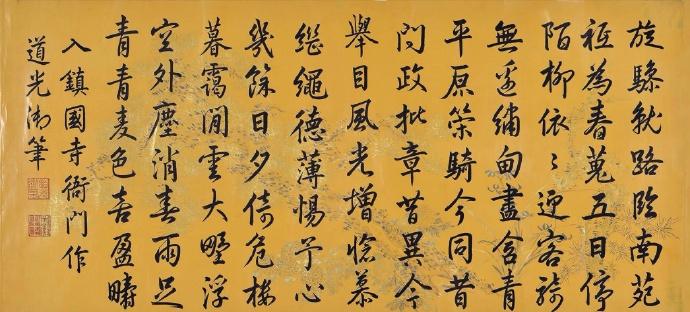 旋驂就路臨南苑
祗為春蒐五日停
陌柳依〻迎客騎
無邊繡甸盡含青
平原策騎今同昔
問政批章昔異今
舉目風光增愴慕
繼繩德薄惕予心
幾餘日夕倚危樓
暮靄閒雲大野浮
空外塵消春雨足
青青麦色喜盈疇
入鎮國寺衙門作
道光御筆